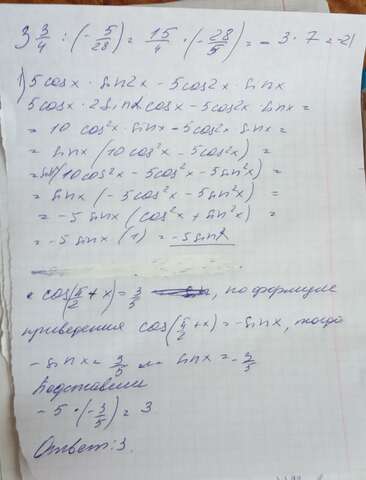 3 3/4 : (-5/28) = 15/4 · (-28/5) = -3·7 = -21
1) 5cosx · sin2x - 5cos2x · sinx
5cosx · 2sinx cosx - 5cos2x sinx =
= 10 cos²x · sinx - 5cos2x sinx =
= sinx (10cos²x - 5cos2x) =
= sinx (10cos²x - 5cos²x - 5sin²x) =
= sinx (-5cos²x - 5sin²x) =
= -5 sinx (cos²x + sin²x) =
= -5 sinx (1) = -5 sinx
cos(π/2 + x) = 3/5, по формуле
приведения cos(π/2 + x) = -sinx, тогда
-sinx = 3/5 sinx = -3/5
Подставим
-5 · (-3/5) = 3
Ответ: 3.